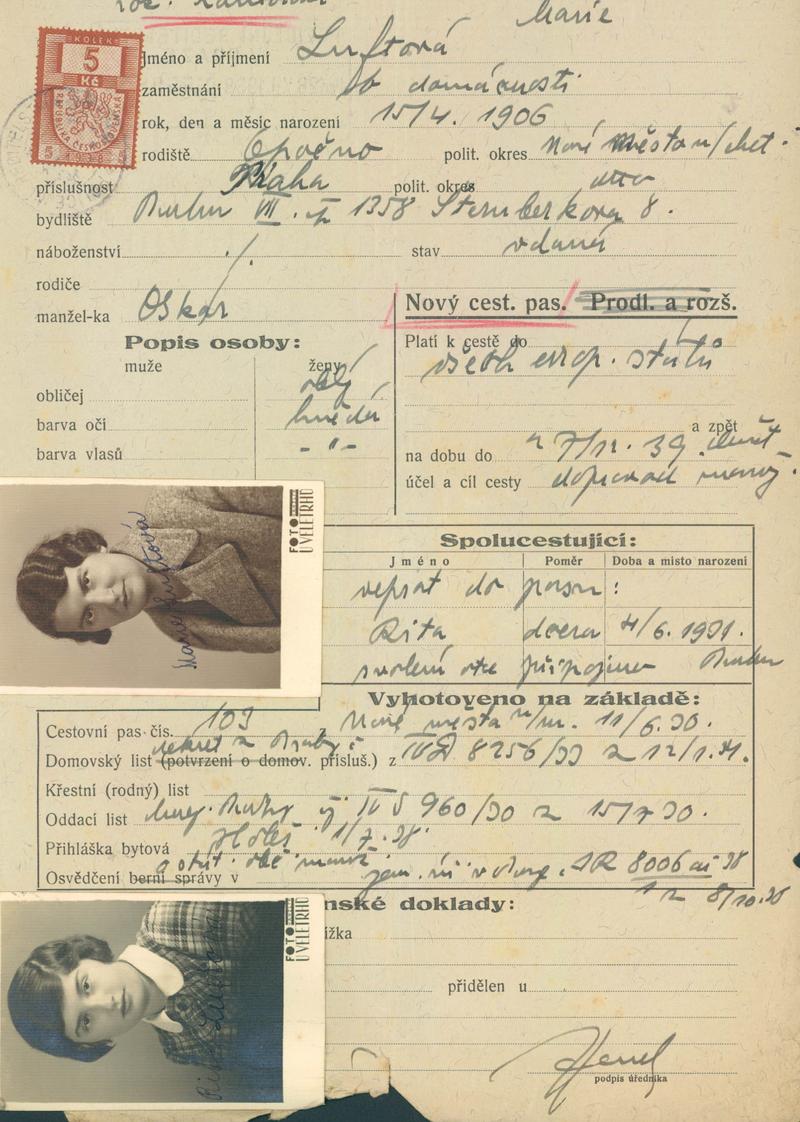 Marie
KOLEK
5
Kč
REPUBLIKA ČESKOSLOVENSKÁ
5 1938 5
Jméno a příjmení Luftová
zaměstnání v domácnosti
rok, den a měsíc narození 15/4. 1906
rodiště Opočno polit. okres Nové Město n/Met.
příslušnost Praha polit. okres
bydliště Praha VII. čp 1358 Šternberkova 8.
náboženství ./. stav vdaná
rodiče
manžel-ka Oskar
Nový cest. pas. Prodl. a rozš.
Platí k cestě do
všech evrop. států
a zpět
na dobu do 7/12. 39.
účel a cíl cesty
Popis osoby:
muže ženy
obličej
barva očí hnědá
barva vlasů - " -
FOTO U VELETRHU
Marie Luftová
Spolucestující:
Jméno Poměr Doba a místo narození
vepsat do pasu:
Rita dcera 4/6. 1931.
svolení otce připojeno
Vyhotoveno na základě:
Cestovní pas čís. 103 z Nové Město n/M. 11/6.30.
Domovský list (potvrzení o domov. přísluš.) z 8256/33 z 12/1.
Křestní (rodný) list
Oddací list 960/30 z 15/7 30.
Přihláška bytová 1/7.38.
Osvědčení berní správy v 8006 38
8/10.38
nské doklady:
ížka
přidělen u
podpis úředníka
FOTO U VELETRHU
Rita Luftova